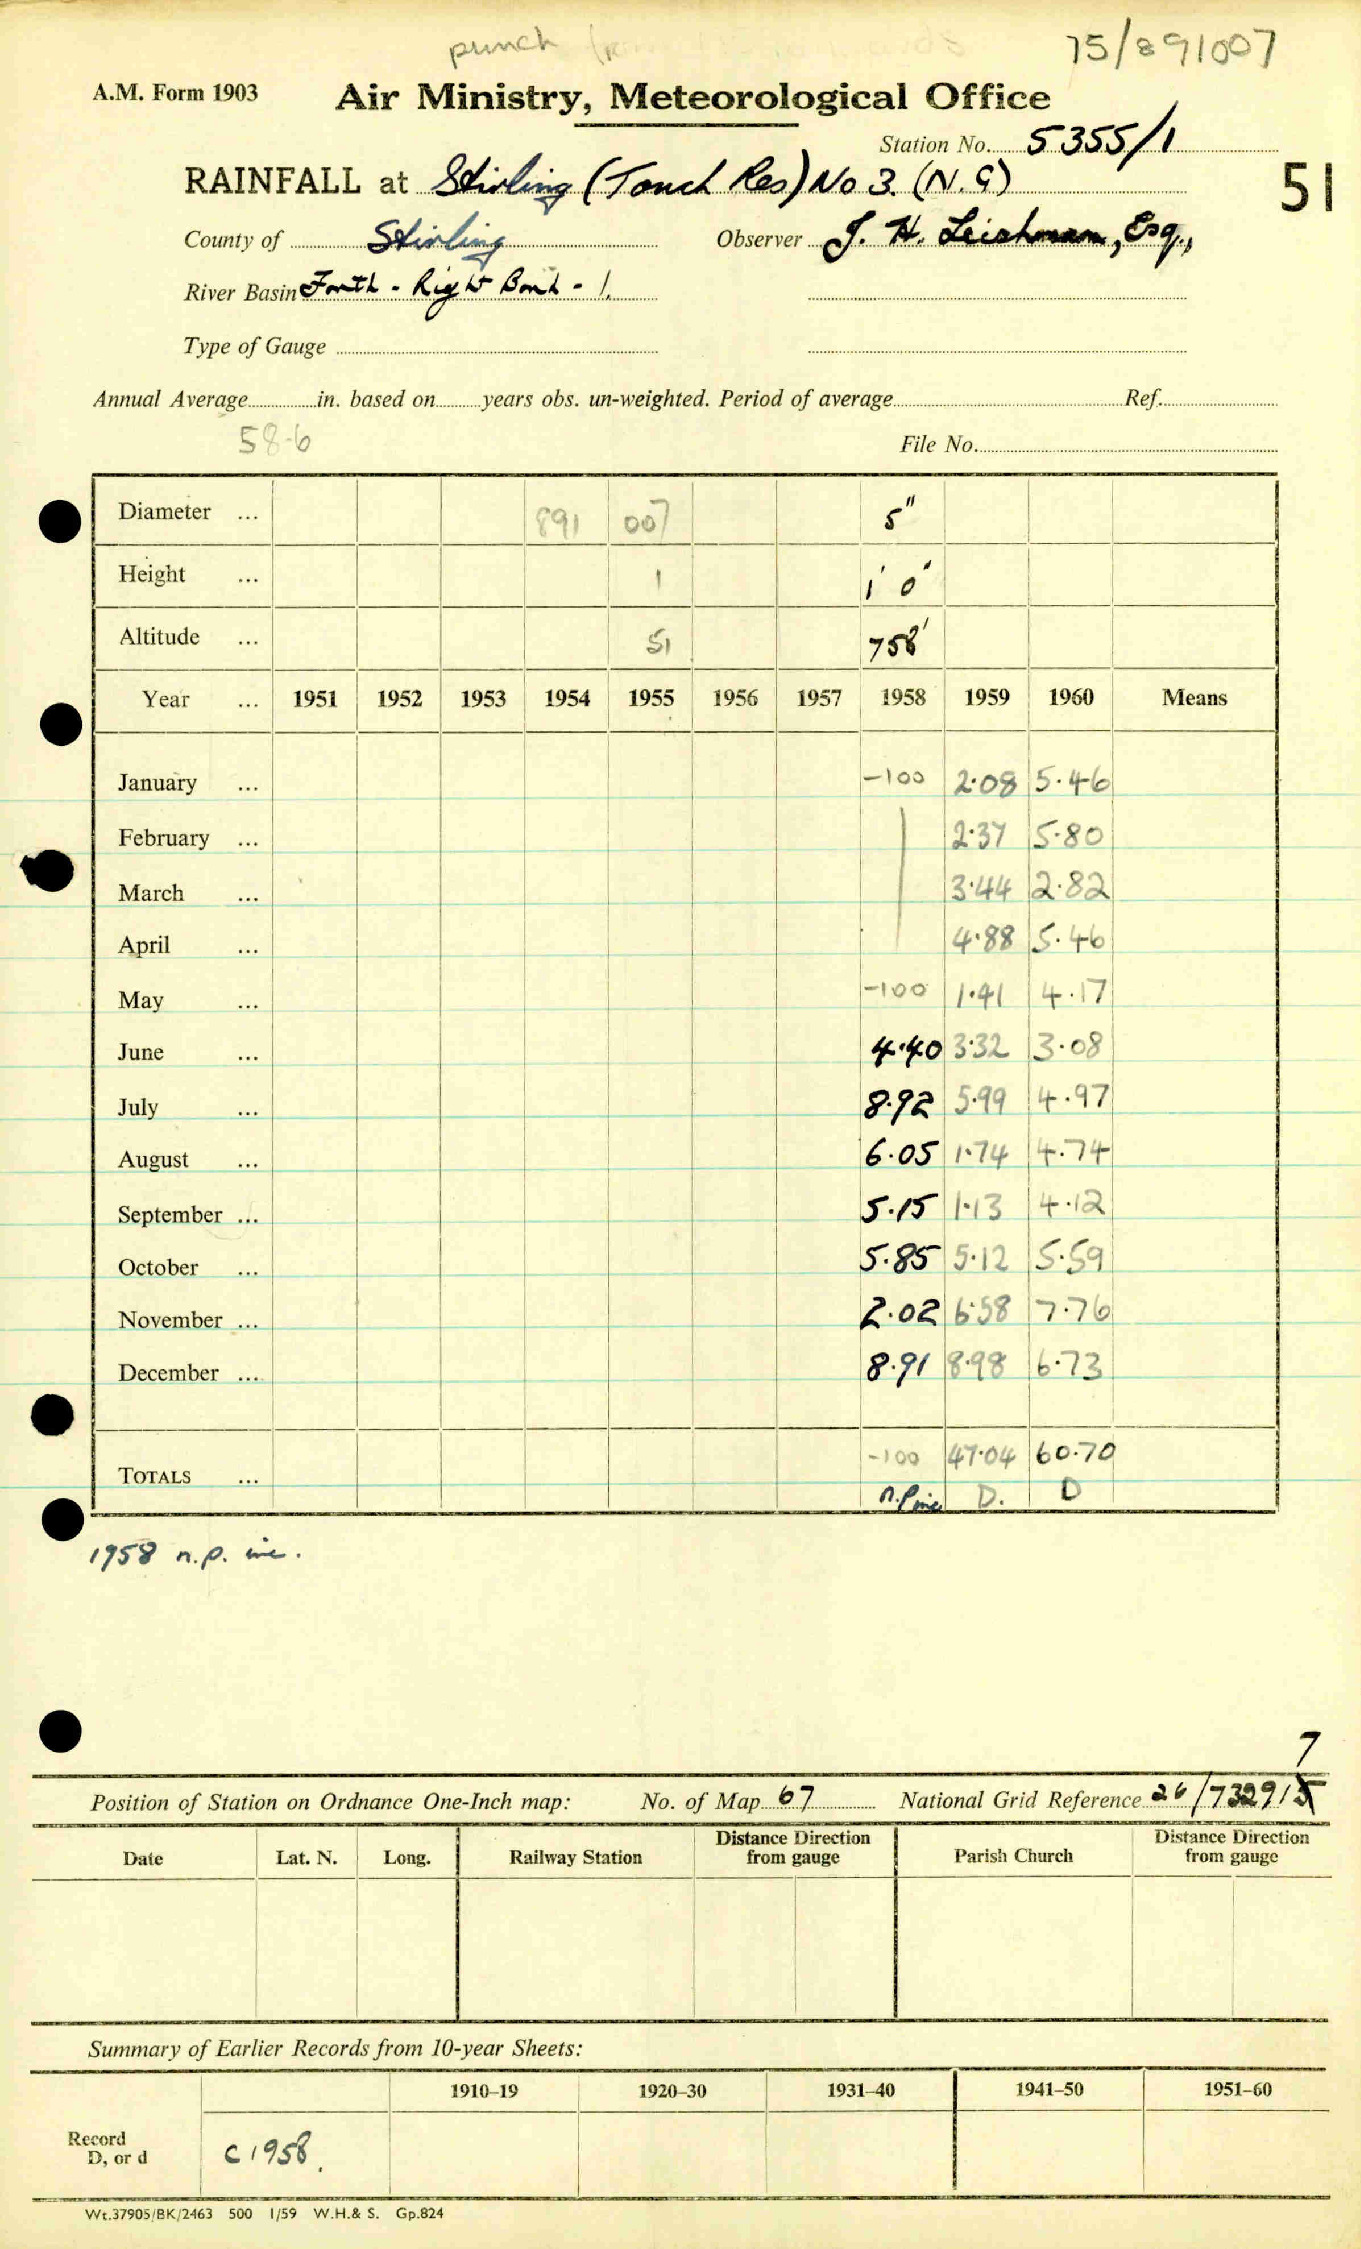 punch
75/891007
A.M. Form 1903
Air Ministry, Meteorological Office
Station No. 5355/1
RAINFALL at Stirling (Touch Res) No 3. (N.G)
51
County of Stirling Observer J. H. Leishman, Esq.,
River Basin Forth - Right Bank - 1.
Type of Gauge
Annual Average in. based on years obs. un-weighted. Period of average Ref.
58.6
File No.
Diameter ... 891 007 5"
Height ... 1 1' 0"
Altitude ... 51 758'
Year ... 1951 1952 1953 1954 1955 1956 1957 1958 1959 1960 Means
January ... -100 2.08 5.46
February ... 2.37 5.80
March ... 3.44 2.82
April ... 4.88 5.46
May ... -100 1.41 4.17
June ... 4.40 3.32 3.08
July ... 8.92 5.99 4.97
August ... 6.05 1.74 4.74
September ... 5.15 1.13 4.12
October ... 5.85 5.12 5.59
November ... 2.02 6.58 7.76
December ... 8.91 8.98 6.73
TOTALS ... -100 47.04 60.70
n.P inc D. D
1958 n.p. inc.
7
Position of Station on Ordnance One-Inch map: No. of Map 67 National Grid Reference 26/732915
Date Lat. N. Long. Railway Station Distance Direction from gauge Parish Church Distance Direction from gauge
Summary of Earlier Records from 10-year Sheets:
1910–19 1920–30 1931–40 1941–50 1951–60
Record
D, or d C 1958.
Wt.37905/BK/2463 500 1/59 W.H.& S. Gp.824